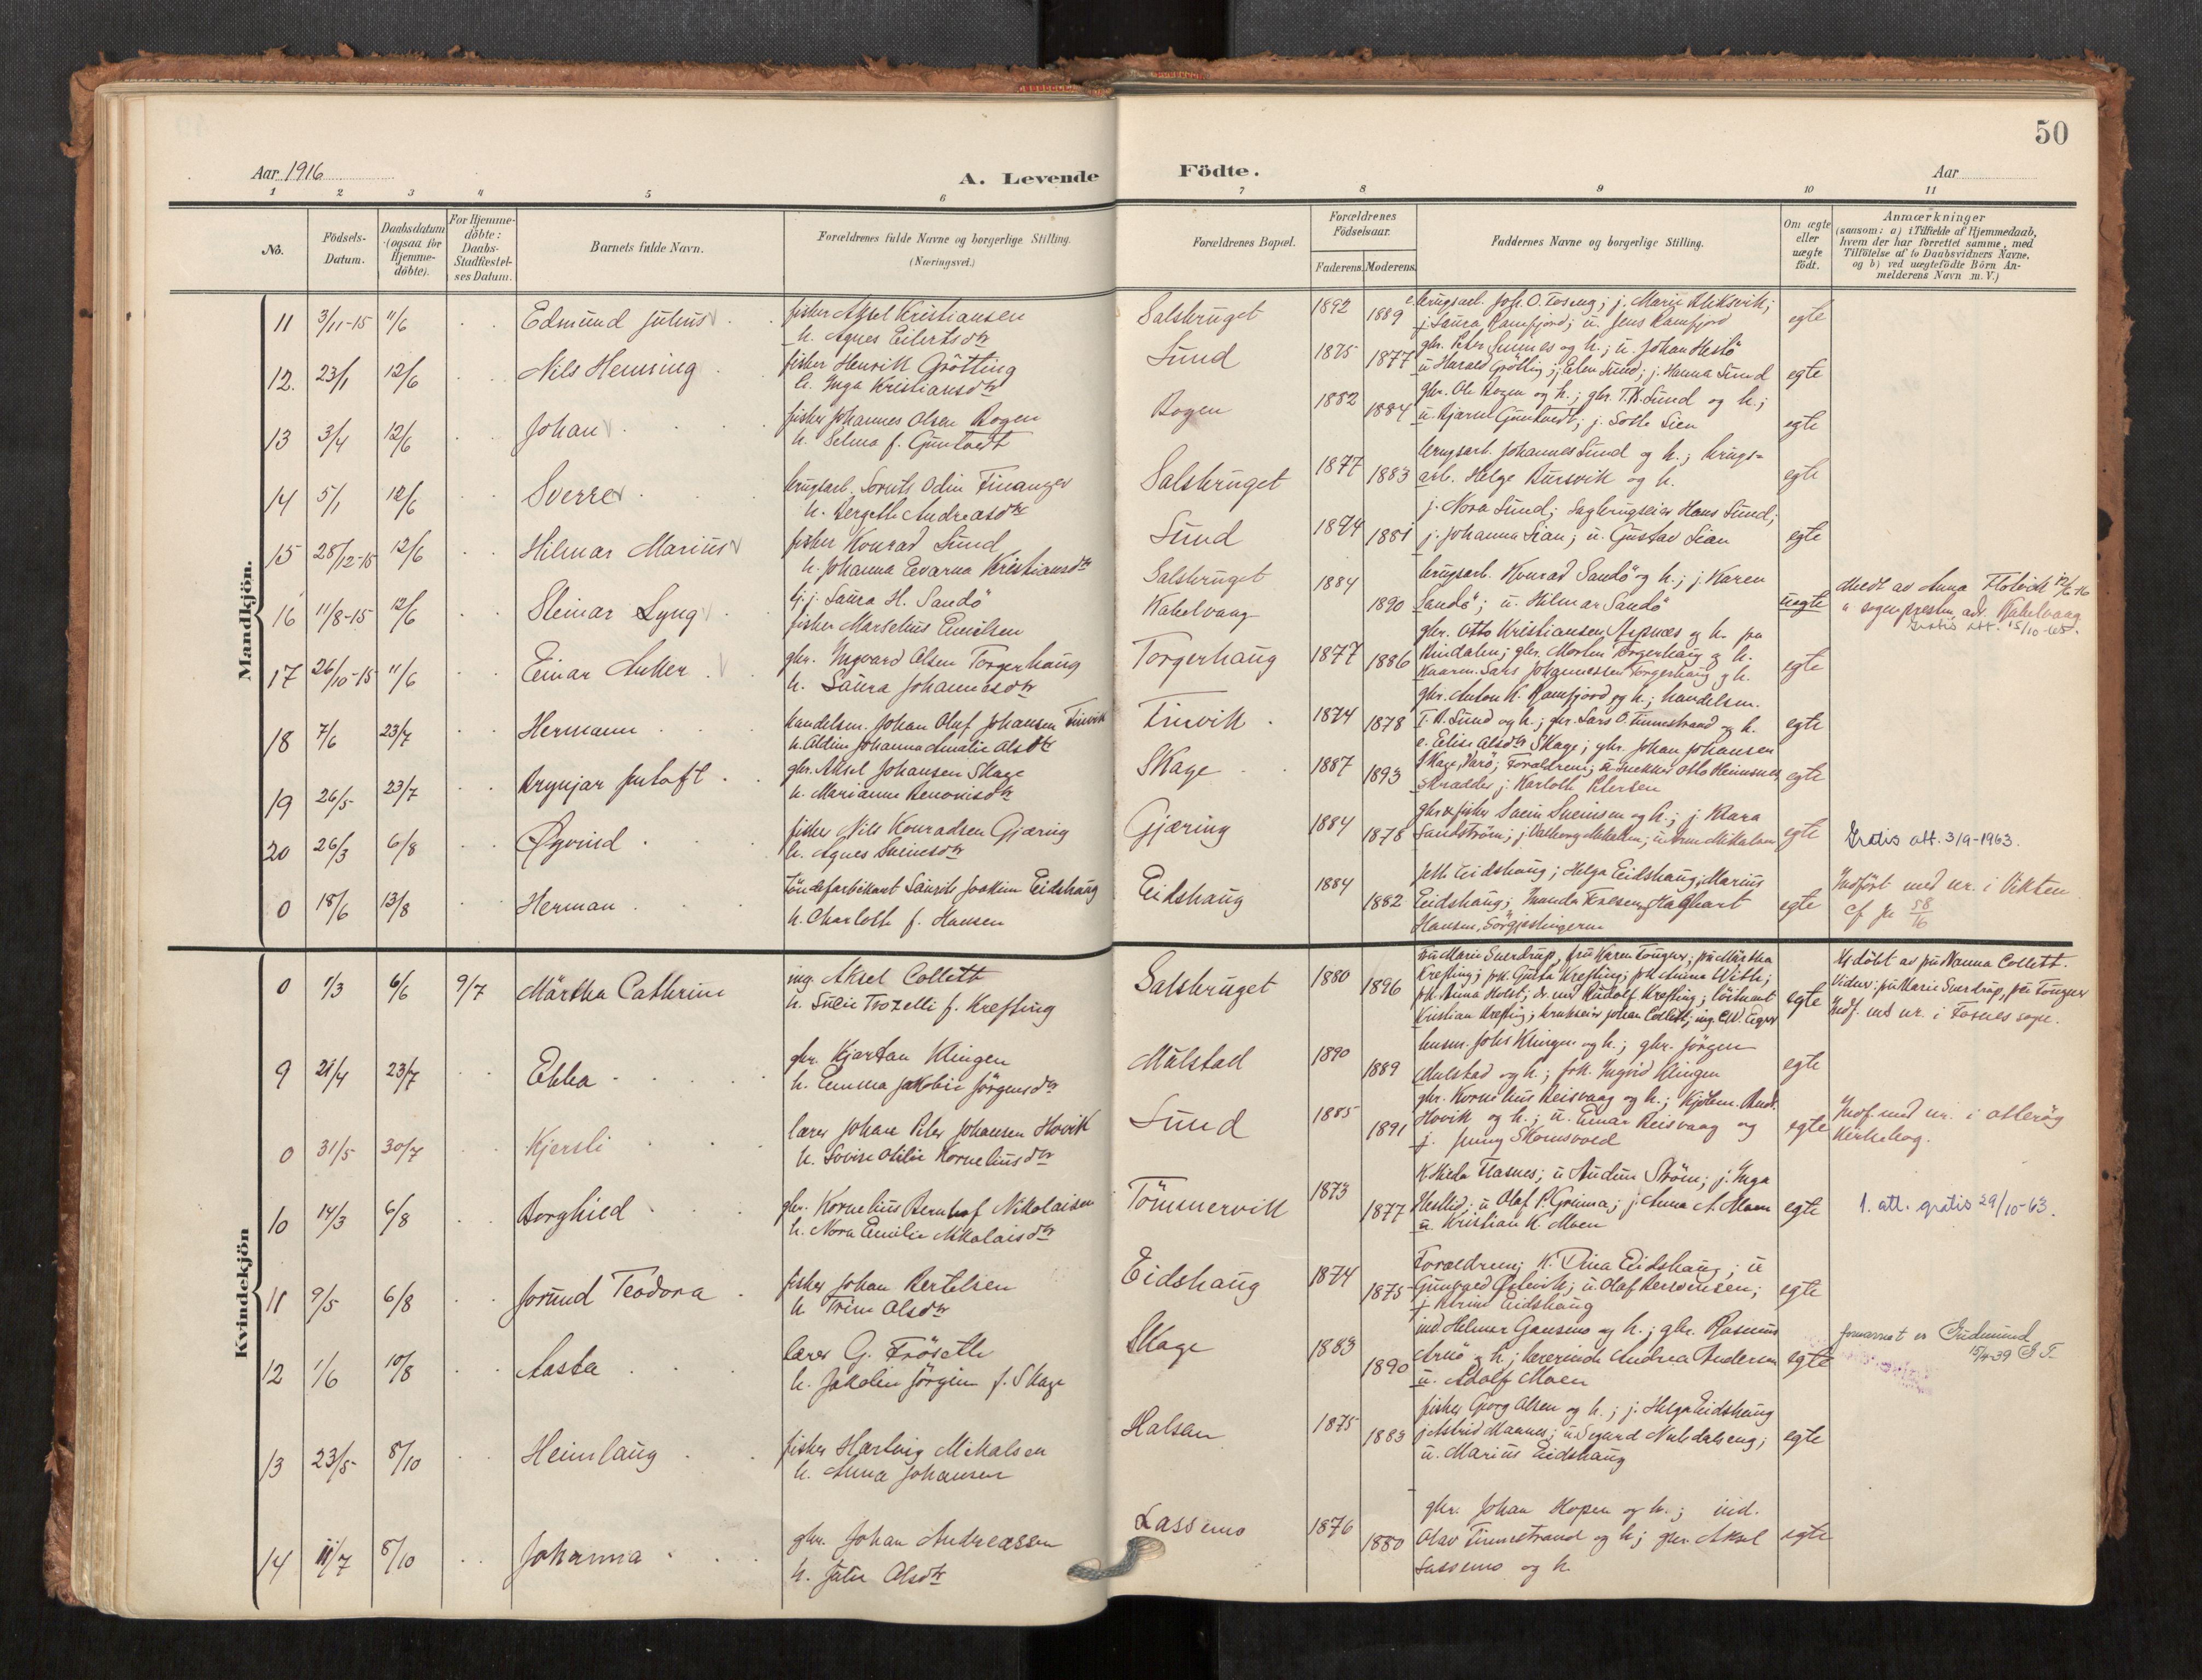 50
Aar 1916
A. Levende
Födte.
Aar
1 2 3 4 5 6 7 8 9 10 11
No.
Födsels-Datum.
Daabsdatum (ogsaa for Hjemmedöbte).
For Hjemmedöbte: Daabs-Stadfæstelses Datum.
Barnets fulde Navn.
Forældrenes fulde Navne og borgerlige Stilling.
(Næringsvei.)
Forældrenes Bopæl.
Forældrenes Födselsaar.
Faderens. Moderens.
Faddernes Navne og borgerlige Stilling.
Om ægte eller uægte födt.
Anmærkninger
(saasom: a) i Tilfælde af Hjemmedaab,
hvem der har forrettet samme, med
Tilföielse af to Daabsvidners Navne,
og b) ved uægtefödte Börn An-
melderens Navn m. V.)
Mandkjön.
11 3/11-15 11/6 Edmund Julius
fisker Aksel Kristiansen
h. Agnes Eilertsdtr
Salsbruget 1892 1889
brugsarb. Joh. O. Foseng; j. Marie
j. Laura Ramfjord; u. Jens Ramfjord
egte
12. 23/1 12/6 Nils Henning
fisker Henrik Grötting
h. Inga Kristiansdtr
Sund 1875 1877
gbr. Peter og h.; u. Johan
u Harald Grötting; j. Elen Sund; j. Hanna Sund
egte
13 3/4 12/6 Johan
fisker Johannes Olsen Bogen
h. Selma f. Guntvedt
Bogen 1882 1884
gbr. Ole Bogen og h.; gbr. T. B. Sund og h.;
u. Bjarne Guntvedt; j. Lien
egte
14 5/1 12/6 Sverre
brugsarb. Odin Finanger
h. Bergette Andreasdtr
Salsbruget 1877 1883
brugsarb. Johannes Sund og h.; brugs=
arb. Helge Bursvik og h.
egte
15 28/12-15 12/6 Hilmar Marius
fisker Konrad Sund
h. Johanna Evarna Kristiansdtr
Sund 1874 1881
j. Nora Sund; Sagbrugseier Hans Sund;
j. Johanna Lian; u. Gustav Lian
egte
16 11/8-15 12/6 Steinar Lyng
j. Laura H. Sandö
fisker Marselius Emilsen
Salsbruget
Kabelvaag 1884 1890
brugsarb. Konrad Sandö og h.; j. Karen
Sandö; u. Hilmar Sandö
uegte
Medt av Anna 12/6-16
a sognepresten, adr. Kabelvaag
Gratis att. 15/10-65.
17 26/10-15 11/6 Einar Anker
gbr. Ingvard Olsen Torgerhaug
h. Laura Johannesdtr
Torgerhaug 1877 1886
gbr. Otto Kristiansen og h. fra
Rindalen; gbr. Morten Torgerhaug og h.
Lars Johannessen Torgerhaug og h.
egte
18 7/6 23/7 Hermann
handelsm. Johan Oluf Johansen Finvik
h. Aldine Johanna Amalie Olsdtr
Finvik 1874 1878
gbr. Anton K. Ramfjord og h.; handelsm.
T. B. Sund og h.; gbr. Lars O. Finnestrand og h.
egte
19 26/5 23/7 Brynjar
gbr. Aksel Johansen Skage
h. Marianne Benoniedtr
Skage 1887 1893
e. Elise Olsdtr Skage; gbr. Johan Johansen
Skage, Værö; Forældrene; u. snekker Otto
skrædder j. Karlotte Petersen
egte
20 26/3 6/8 Øyvind
fisker Nils Konradsen Gjæring
h. Agnes Sveinsdtr
Gjæring 1884 1878
gbr. & fisker Svein Sveinsen og h.; j. Klara
Sandström; j. Valborg Mikalsen; u. Mikalsen
egte
Gratis att. 3/9-1963.
0 18/6 13/8 Herman
Töndefabrikant Laurits Joakim Eidshaug
h. Charlotte f. Hansen
Eidshaug 1884 1882
Eidshaug; Helga Eidshaug, Marius
Eidshaug; Haghart
Hansen, Sörgjæslingerne
egte
Indfört med nr. i Vikten
cf. jr 58/16
Kvindekjön
0 1/3 6/6 9/7 Märtha Cathrine
ing. Aksel Collett
h. Lucie Trozelli f. Krefting
Salsbruget 1880 1896
fru Marie Sverdrup, fru Karen Tönger; fru Märtha
Krefting; frk. Gusta Krefting; frk. Anna With;
frk. Anna Holst; dr. med. Rudolf Krefting; löitnant
Kristian Krefting; brukseier Johan Collett; ing. C. W. Eger
egte
Hj döbt av fru Nanna Collett.
Vidner: fru Marie Sverdrup, fru Tönger
Indf. med nr. i Fosnes sogn.
9 21/4 23/7 Ebba
gbr. Kjartan Klingen
h. Emma Jakobie Jörgensdtr
Mulstad 1890 1889
husm. Johs Klingen og h.; gbr. Jörgen
Mulstad og h.; frk. Ingrid Klingen
egte
0 31/5 30/7 Kjersti
lærer Johan Peter Johansen Hovik
h. Lovise Otilie Korneliusdtr
Sund 1885 1891
gbr. Kornelius Reisvaag og h.; kjöbm. Andr.
Hovik og h.; u. Einar Reisvaag og
j. Jenny Skomsvold
egte
Indf. med nr. i Otterøy
Kirkebog.
10 14/3 6/8 Borghild
gbr. Kornelius Bernhof Nikolaisen
h. Nora Emilie Nikolaisdtr
Tömmervik 1873 1877
K. Hilda Flasnes; u. Audun Ström; j. Inga
u. Olaf P. Grinna; j. Anna A. Moen
u. Kristian K. Moen
egte
1. att. gratis 29/10-63.
11 9/5 6/8 Jorund Teodora
fisker Johan Bertelsen
h. Trine Olsdtr
Eidshaug 1874 1875
Forældrene; K. Dina Eidshaug; u
u. Olaf Bersvensen;
Eidshaug
egte
12 1/6 10/8 Aasta
lærer G. Fröseth
h. Jakobie Jörgine f. Skage
Skage 1883 1890
ind. Helmer Gansmo og h.; gbr. Rasmus
og h.; lærerinde Andrea Andersen
u. Adolf Moen
egte
fornavnet er Gudmund
15/4-39
13 23/5 8/10 Heimlaug
fisker Hartvig Mikalsen
h. Anna Johansen
Halsan 1875 1883
fisker Georg Olsen og h.; j. Helga Eidshaug
j. Astrid; u. Sigurd
u. Marius Eidshaug
egte
14 11/7 8/10 Johanna
gbr. Johan Andreassen
h. Jutte Olsdtr
Lassemo 1876 1880
gbr. Johan Kopen og h.; ind.
Olav Finnestrand og h.; gbr. Aksel
Lassemo og h.
egte